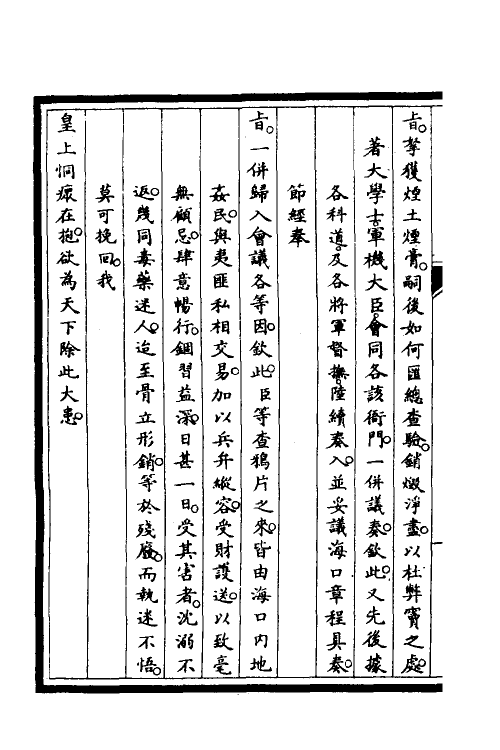 旨。拏獲煙土煙膏。嗣後如何匯總查驗。銷燬淨盡。以杜弊竇之處。
著大學士。軍機大臣。會同各該衙門。一併議奏。欽此。又先後據
各科道。及各將軍督撫。陸續奏入。並妥議海口章程具奏。
節經奉
旨。一併歸入會議各等因。欽此。臣等查鴉片之來。皆由海口內地
姦民。與夷匪私相交易。加以兵弁縱容。受財護送。以致毫
無顧忌。肆意暢行。錮習益深。日甚一日。受其害者。沈溺不
返。幾同毒藥迷人。迨至骨立形銷。等於殘廢。而執迷不悟。
莫可挽回。我
皇上恫瘝在抱。欲為天下除此大患。